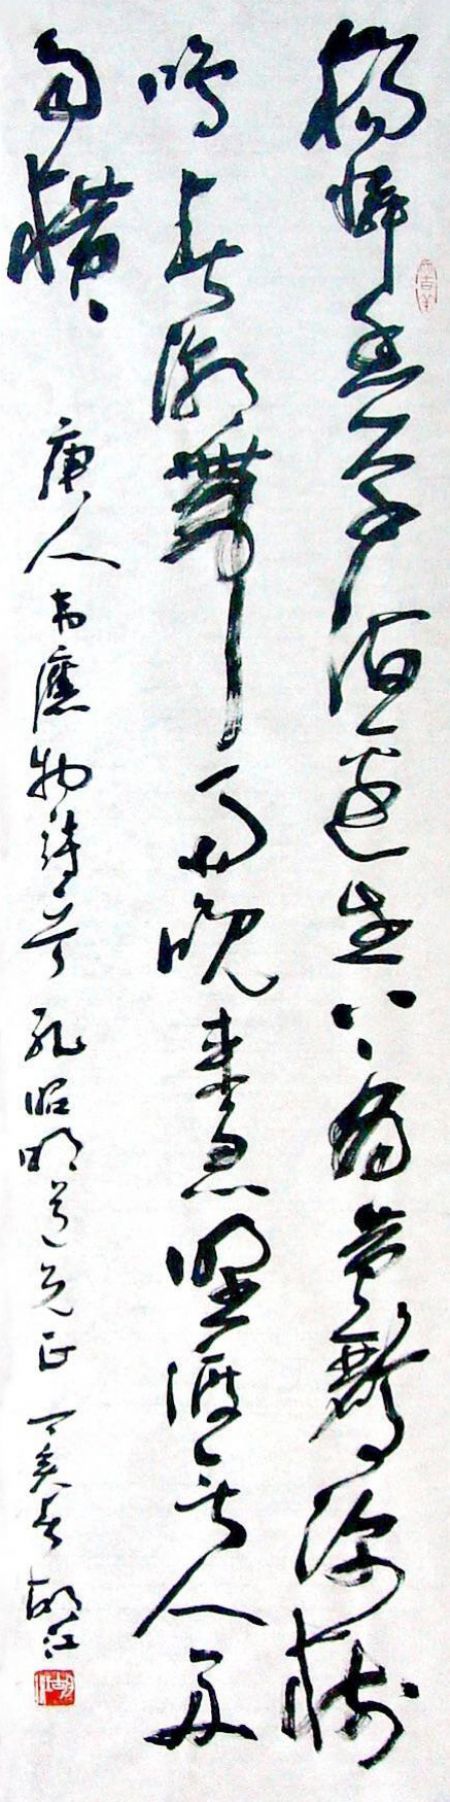 獨憐幽草澗邊生上有黃鸝深樹
鳴春潮帶雨晚來急野渡無人舟
自橫
唐人韋應物詩 孔昭明道兄正 丁亥春 胡江